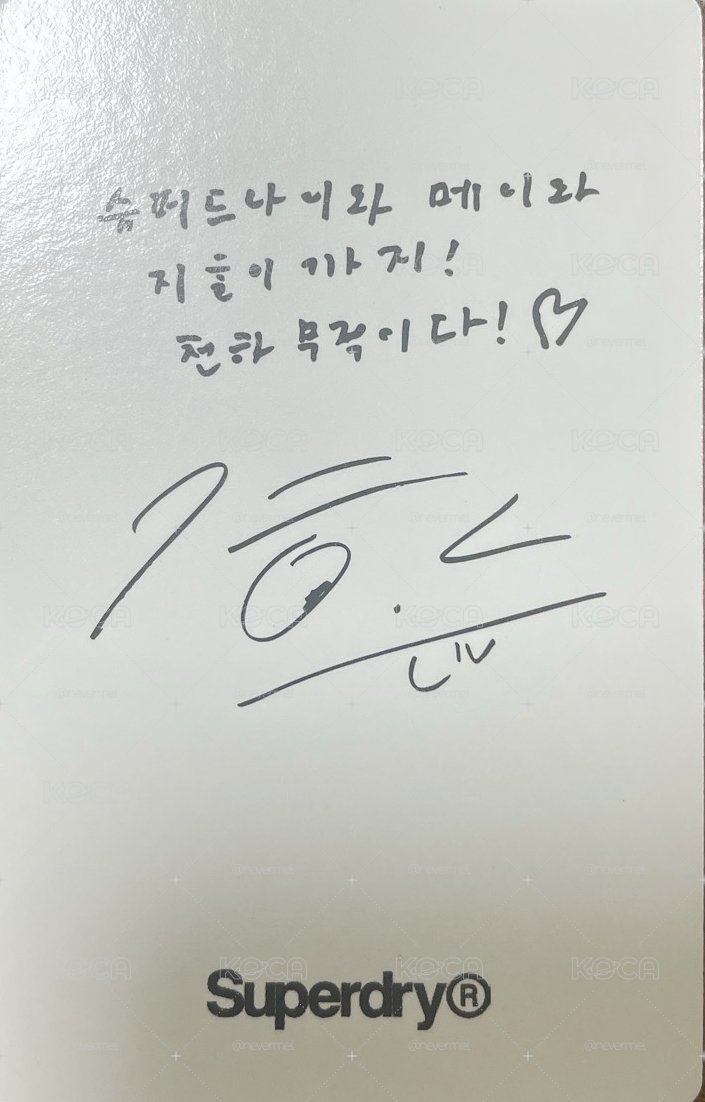 슈퍼드라이와 메이와
지훈이 까지!
천하무적이다! ♡
Liv
Superdry®
KOCA
@nevermel